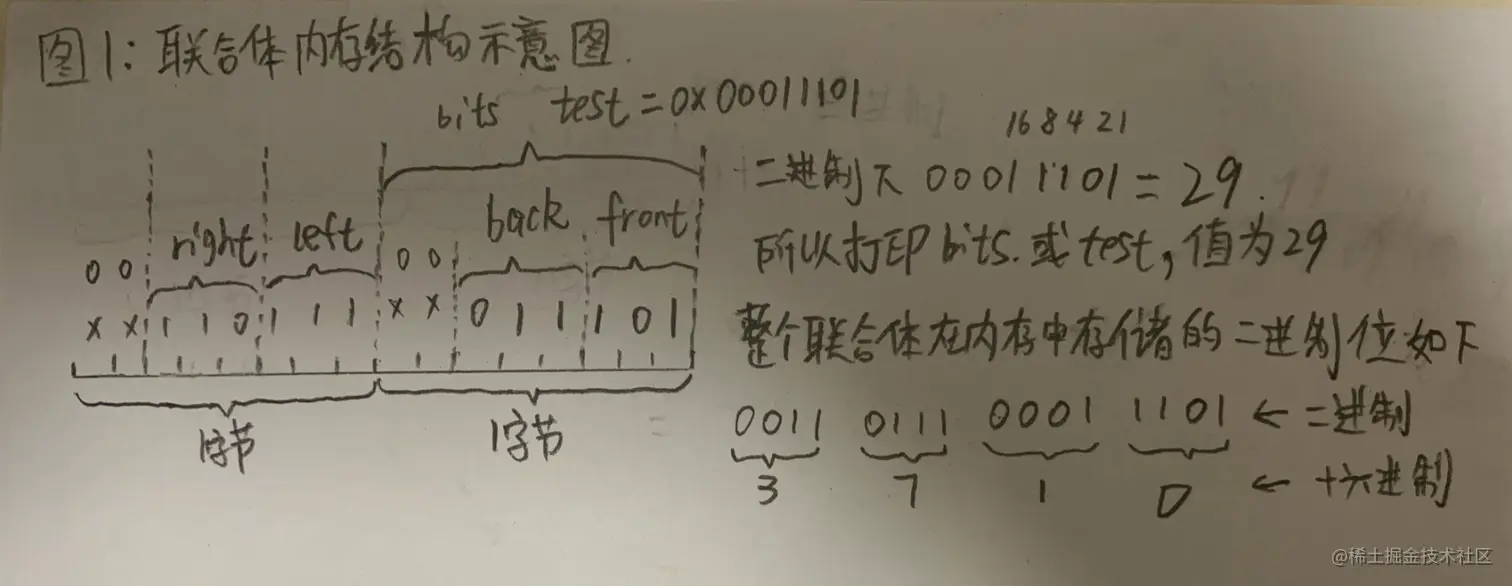 图1:联合体内存结构示意图.
bits test=0x00011101
16 8 4 2 1
二进制下 00011101=29.
right left back front
0 0 0 0
所以打印bits.或test,值为29
x x 1 1 0 1 1 1 x x 0 1 1 1 0 1
整个联合体在内存中存储的二进制位如下
1字节 1字节
0011 0111 0001 1101 ← 二进制
3 7 1 D ← 十六进制
@稀土掘金技术社区